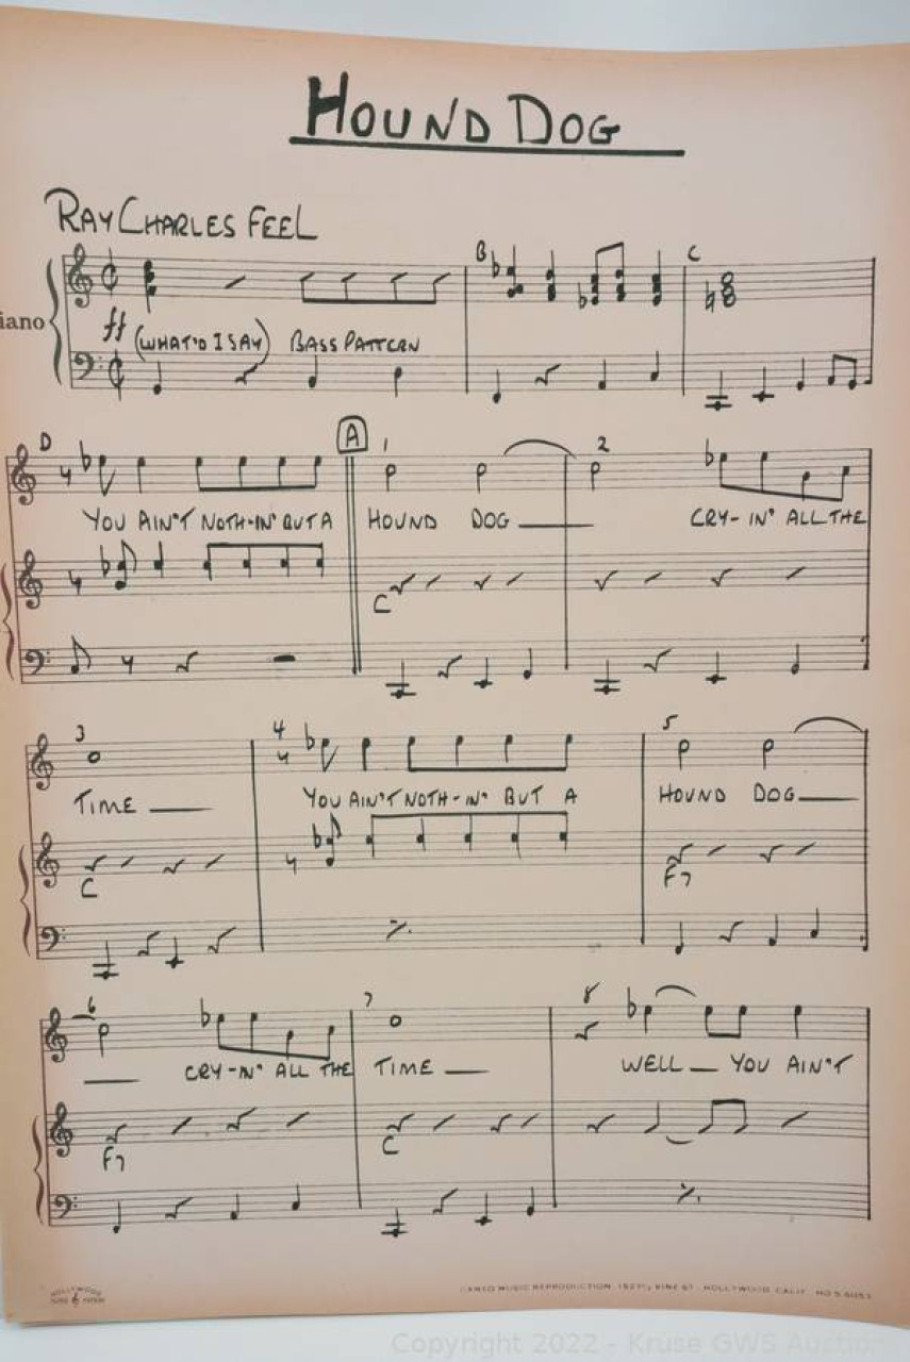 HOUND DOG
RAY CHARLES FEEL
B C
iano
ff (WHAT'D I SAY) BASS PATTERN
D A 1 2
YOU AIN'T NOTH-IN' BUT A HOUND DOG CRY-IN' ALL THE
C
3 4 5
TIME YOU AIN'T NOTH-IN' BUT A HOUND DOG
C F7
6 7 8
CRY-N' ALL THE TIME WELL YOU AIN'T
F7 C
HOLLYWOOD
CAMEO MUSIC REPRODUCTION VINE ST. HOLLYWOOD CALIF.
Copyright 2022 - Kruse GWS Auctions